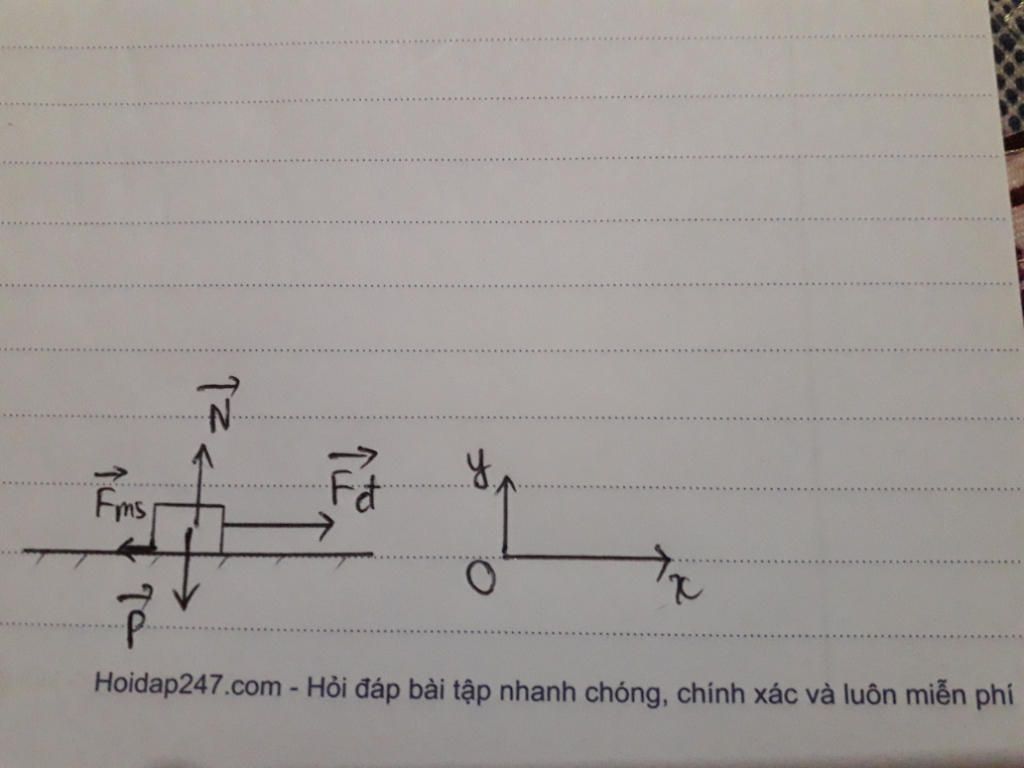 N
Fms
Fd
y
P
O
x
Hoidap247.com - Hỏi đáp bài tập nhanh chóng, chính xác và luôn miễn phí